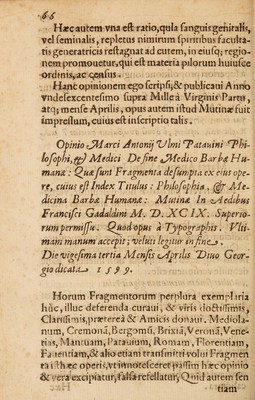 66
Hæc autem vna est ratio, qula sanguis genitalis,
vel seminalis, repletus nimirum spiritibus faculta-
tis generatricis restagnat ad cutem, in eiusq; regio-
nem promouetur, qui est materia pilorum huiusce
ordinis, ac census.
Hanc opinionem ego scripsi, & publicaui Anno
vndesexcentesimo supra Mille à Virginis Partu,
atq; mense Aprilis, opus autem istud Mutinæ fuit
impressum, cuius est inscriptio talis.
Opinio Marci Antonij Vlmi Patauini Phi-
losophi, & Medici De fine Medico Barbæ Hu-
manæ: Quæ sunt Fragmenta desumpta ex eius ope-
re, cuius est Index Titulus: Philosophia, & Me-
dicina Barbæ Humanæ: Mutinæ In Aedibus
Francisci Gadaldini M. D. XCIX. Superio-
rum permissu: Quod opus à Typographis Vlti-
mam manum accepit; veluti legitur in fine.
Die vigesima tertia Mensis Aprilis Diuo Geor-
gio dicata 1599.
Horum Fragmentorum perplura exemplaria
hûc, illuc deferenda curaui, & viris doctissimis,
Clarissimis, præterea & Amicis donaui, Mediola-
num, Cremonã, Bergomũ, Brixiã, Veronã, Vene-
tias, Mantuam, Patauium, Romam, Florentiam,
Fauentiam, & alio etiam transmitti volui Fragmen-
ta isthæc operis, vt innotesceret passim hæc opinio
& vera excipiatur, falsa refellatur, Quid autem sen
tiam